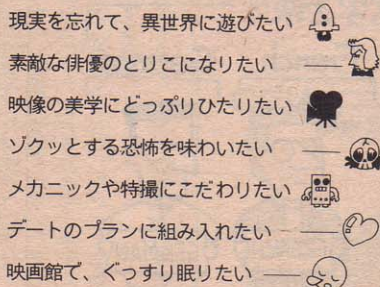 現実を忘れて、異世界に遊びたい
素敵な俳優のとりこになりたい
映像の美学にどっぷりひたりたい
ゾクッとする恐怖を味わいたい
メカニックや特撮にこだわりたい
デートのプランに組み入れたい
映画館で、ぐっすり眠りたい